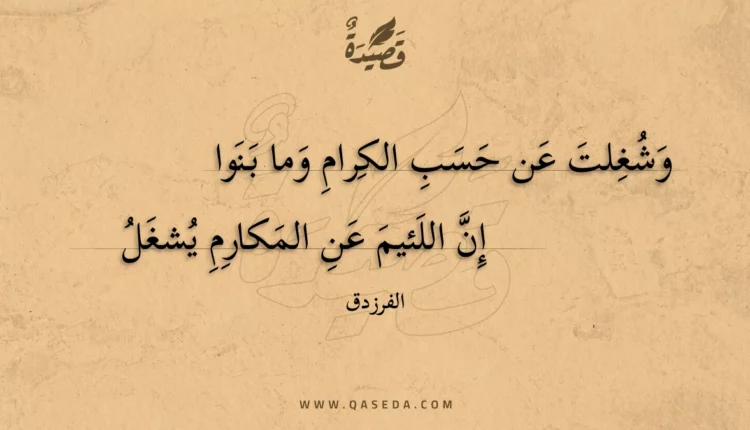 قَصِيْدَةٌ
وَشُغِلتَ عَن حَسَبِ الكِرامِ وَما بَنَوا
إِنَّ اللَئيمَ عَنِ المَكارِمِ يُشغَلُ
الفرزدق
WWW.QASEDA.COM